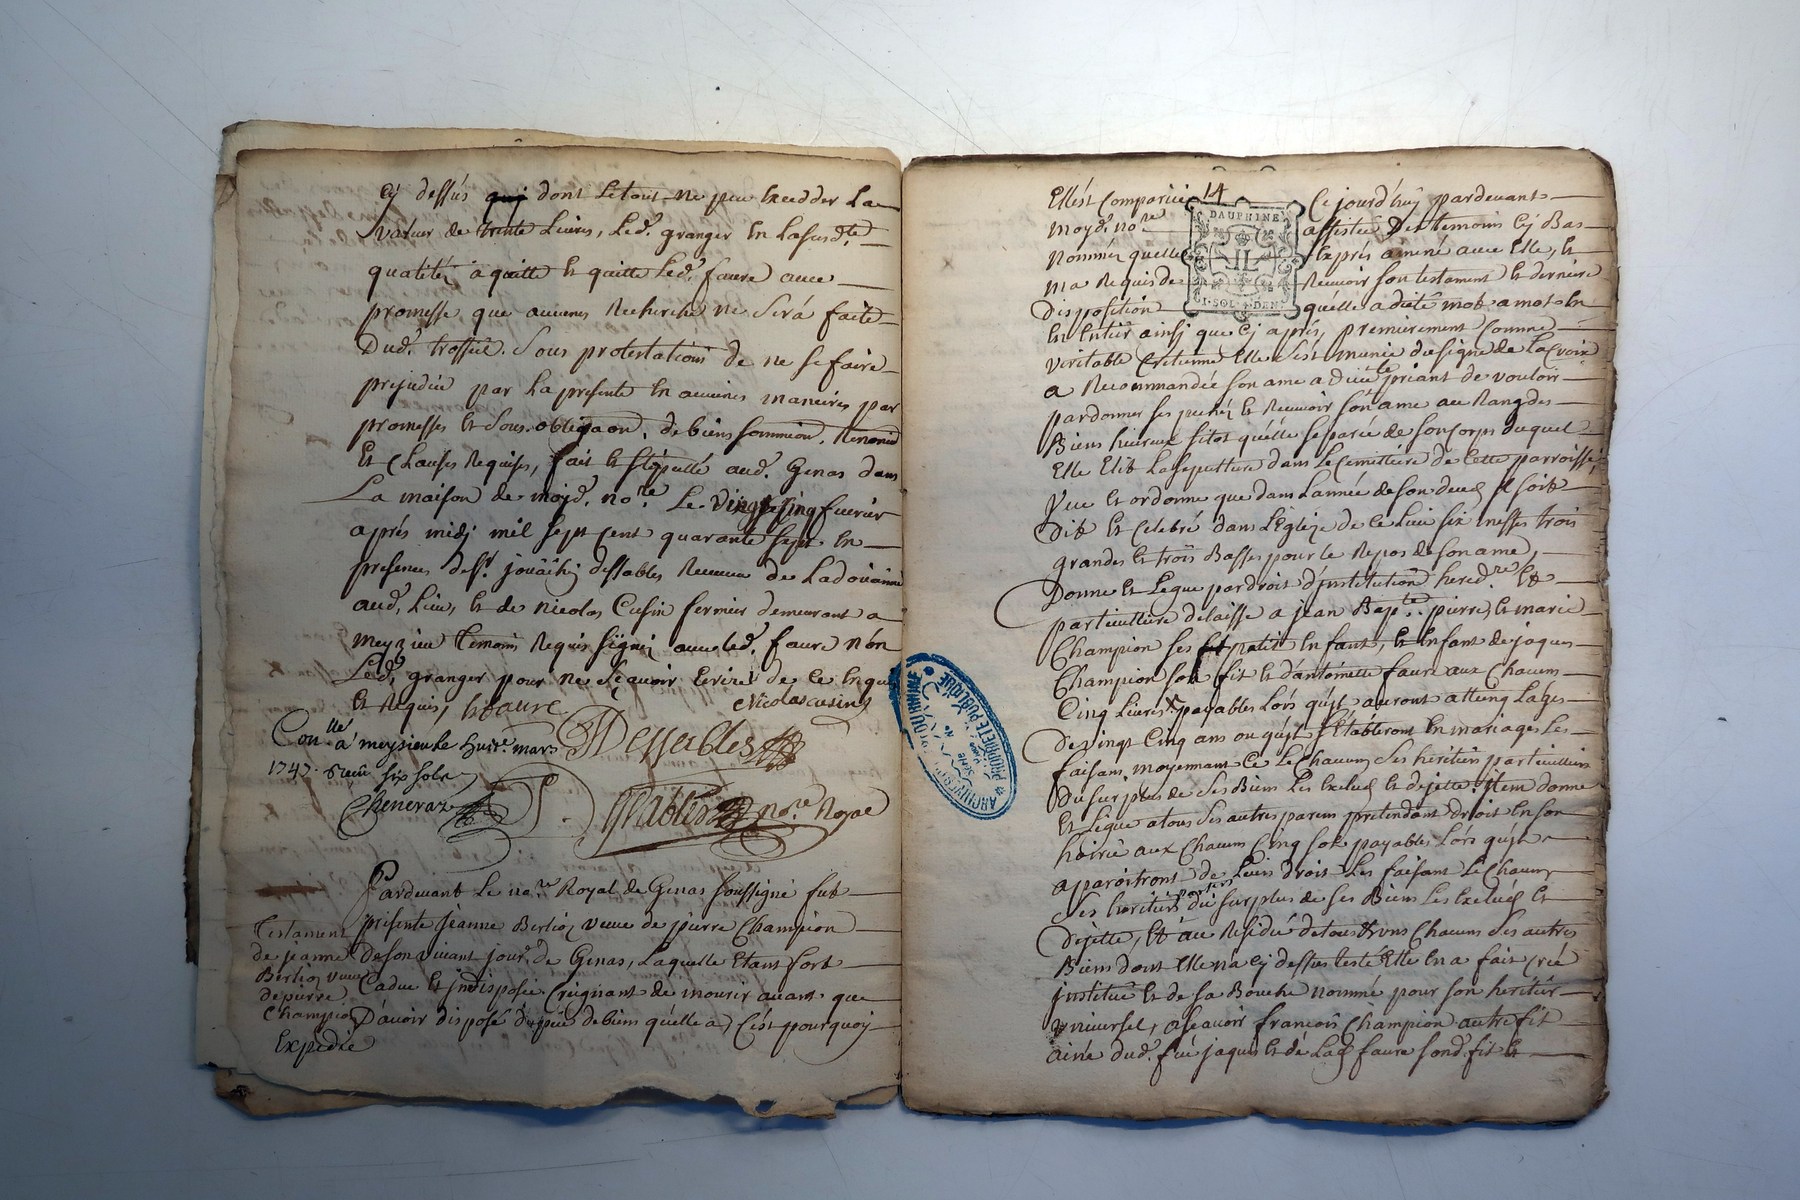 cy dessus dont letout ne peu Excedder La
valeur de trente Livres, Led. granger En Lasusd.te
qualitéz a quitté Et quitte Led. faure avec
promesse que aucunes Recherche ne Sera faite
Dud. trossue. Sous protestations de ne se faire
prejudice par La presente En aucunes manieres par
promesses Et Sous obligaon. de biens Renoncé
Et Clauses Requises, fait Et stipullé aud. Genas dans
La maison de moyd. no.re Le vingt sinq fuevrier
aprés midj mil sept cent quarante sept En
presences de S.r joüâchin dessables Receveur de Ladoüanne
aud. Lieu, Et de nicolas Cusin fermier demeurant a
meyzieu temoins Requis signéz avec led. faure non
Led. granger pour ne Sçavoir Ecrire de ce Enquis
Et Requis, faure
Nicolas cusin
Con.llé a meysieu le huit.e mars
1747. Receu six sols
Cheneraz
Dessables
no.re Royal
Pardevant Le no.re Royal de Genas soussigné fut
presente jeanne Bertion veuve de pierre Champion
De son vivant jour. de Genas, Laquelle Etant fort
Cadue Et jndisposée Creignant de mourir avant que
D'avoir disposé du peu de biens qu'elle a, C'est pourquoj
Testament
de jeanne
Bertion veuve
de pierre
Champion
Expedié
14
DAUPHINE
1·SOL 4·DEN
Ellest Comparüe Ce jourd'huy pardevant
moyd. no.re assistée Des temoins Cy Bas
nomméz quelle Exprés améné avec Elle, Et
ma Requis de Recevoir son testament Et derniere
Disposition qu'elle a dicté mot a mot En
En Entier ainsj que Cy aprés, premierement Comme
veritable Cretienne Elle s'est munie du signe de La Croix
a Recommandée son ame a Dieu Le priant de vouloir
pardonner ses pechéz Et Recevoir son ame au Rang des
Biens hureux sitot qu'elle separée de son Corps duquel
Elle Elit La sepulture dans Le Cemittiere de Cette parroisse,
veut Et ordonne que dans L'année de son deced jl soit
Dit Et Celebré dans L'Eglize de Ce Lieu six messes trois
grandes Et trois Basses pour le Repos de son ame,
Donne Et Legue par droit d'jnstitution hered.re Et
particulliere delaisse a jean Bap.te pierre, Et marie
Champion ses petit Enfans, Et Enfant de jaques
Champion son fit Et d'antoinette faure aux Chacun
Cinq Livres payables Lors qu'jls auront atteing Lages
De vingt Cinq ans ou qu'jls s'Etabliront En mariages Les
faisant moyennant Ce Le Chacun Ses heritiers particulliers
Du surplus de Ses Biens Les Exclud Et dejette. jtem donne
Et Legue a tous Ses autres parens pretendant droit En son
hoirie aux Chacun Cinq sols payables Lors qu'jls
apparoitront de Leurs droit Les faisant Le Chacun
Ses heritiers part.rs du surplus de ses Biens Les Exclud Et
Dejette, Et au Residu de tous Et uns Chacun Ses autres
Biens dont Elle n'a Cy dessus testé Elle En a fait Créé
jnstitué Et de sa Bouche nommé pour son heritier
universel, asçavoir francois Champion autre fit
ainé dud. feu jaques Et de Lad. faure sond. fit Et
ARCHIVES
PROPRIÉTÉ PUBLIQUE